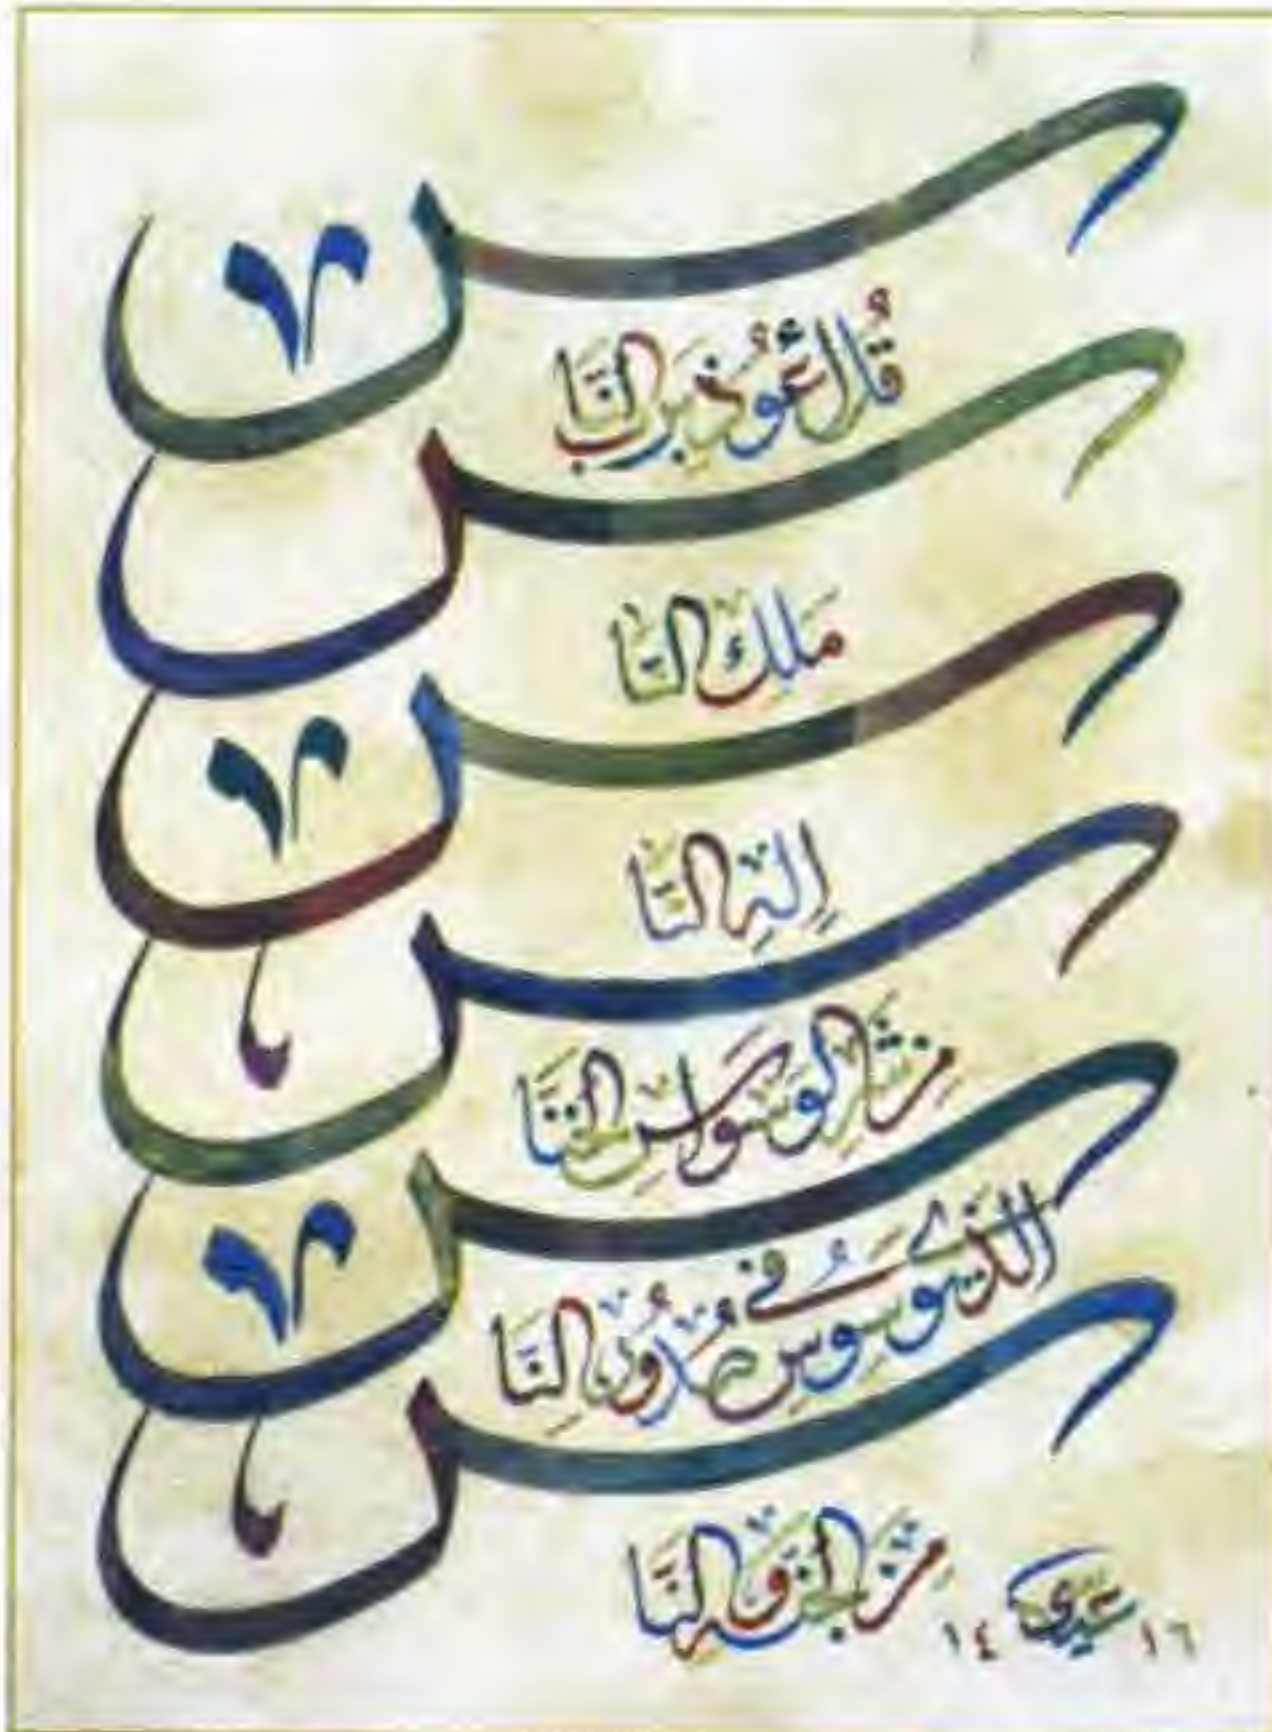 قُل أَعُوذُ بِرَبِّ النَّاس
مَلِكِ النَّاس
إِلَٰهِ النَّاس
مِن شَرِّ الوَسوَاسِ الخَنَّاس
الَّذِي يُوَسوِسُ فِي صُدُورِ النَّاس
مِنَ الجِنَّةِ وَ النَّاس
١٤ ١٦